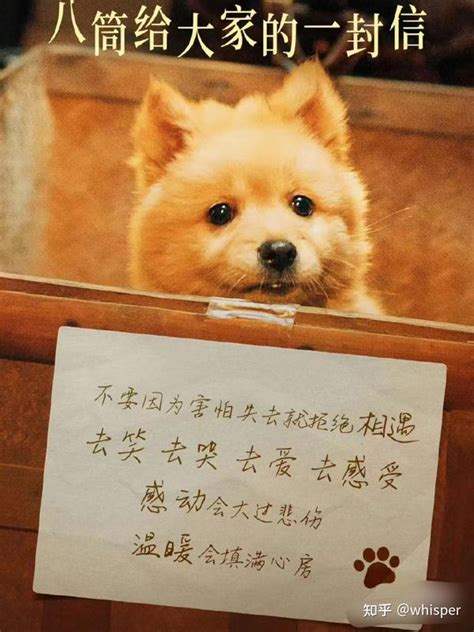 八筒给大家的一封信
不要因为害怕失去就拒绝相遇
去笑 去哭 去爱 去感受
感动会大过悲伤
温暖会填满心房
知乎 @whisper